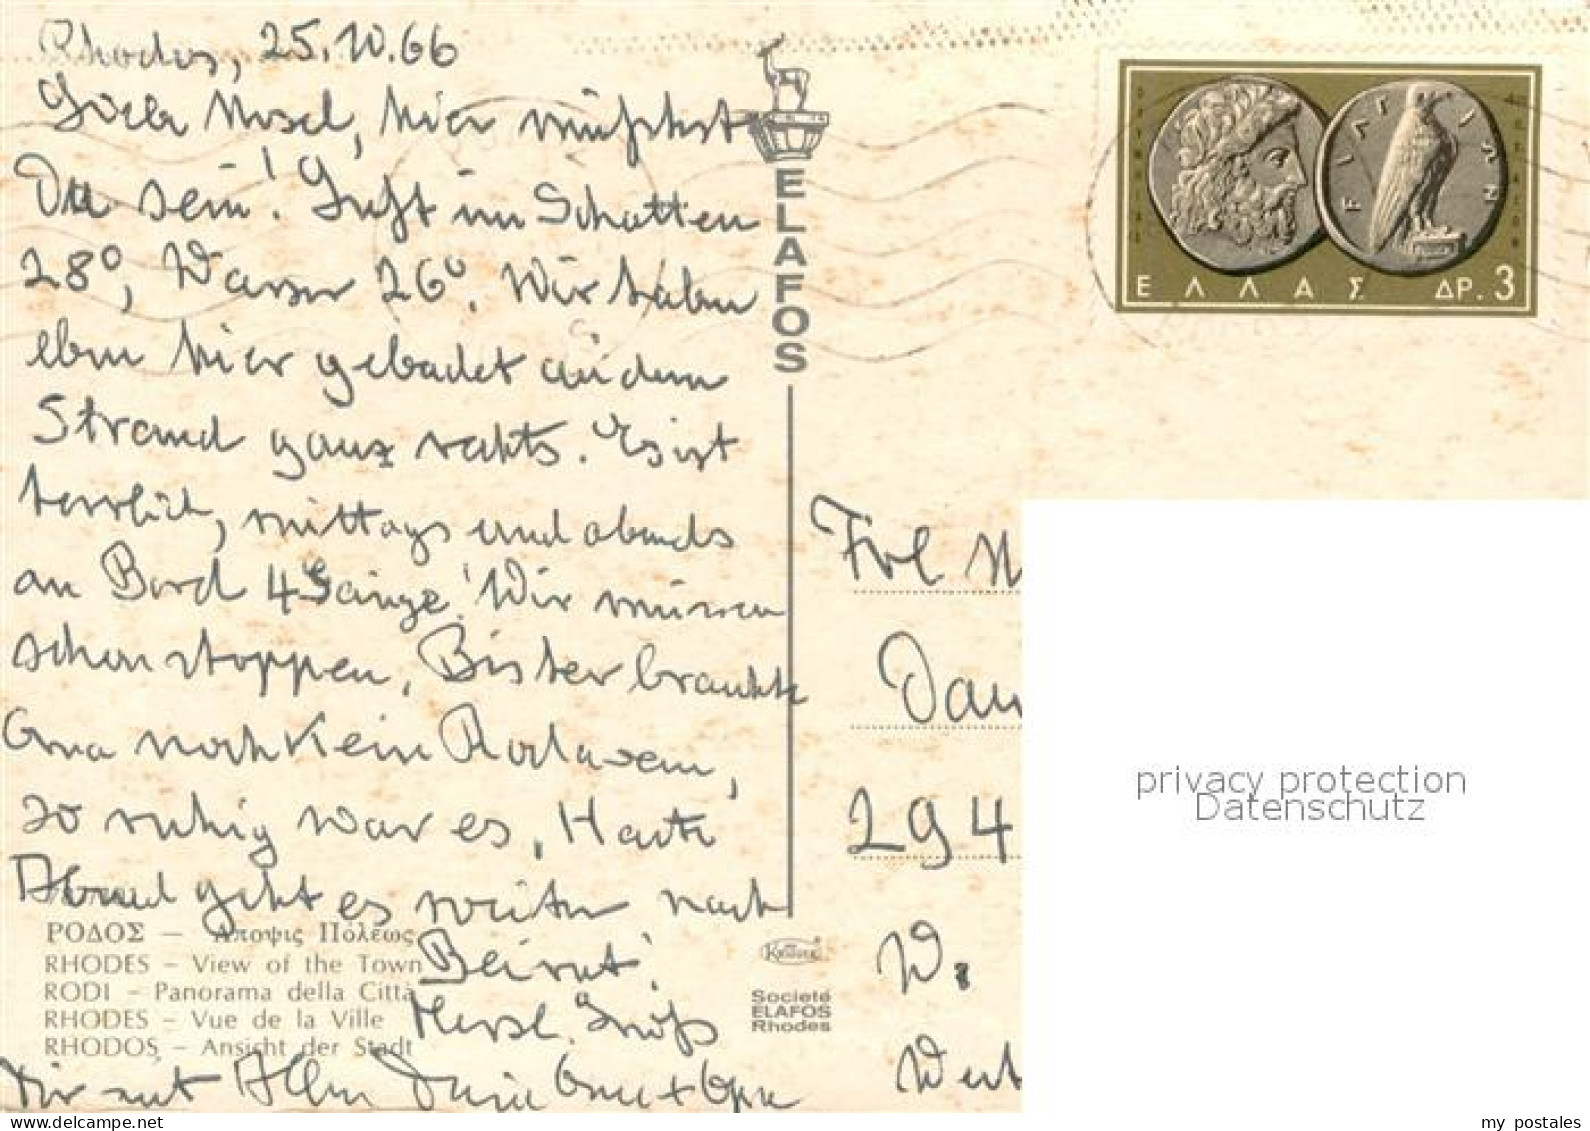 Rhodos, 25.10.66
Liebe Mosel, hier müßtest
Du sein! Luft im Schatten
28°, Wasser 26°. Wir haben
eben hier gebadet an dem
Strand ganz rechts. Es ist
herrlich, mittags und abends
an Bord 4 Gänge! Wir müssen
schon stoppen. Bisher brauchte
Oma noch kein Rodavan,
so ruhig war es. Heute
Abend geht es weiter nach
Beirut.
Herzl. Grüß
Dir mit Allen Deine Oma + Opa
ΡΟΔΟΣ — Άποψις Πόλεως
RHODES – View of the Town
RODI – Panorama della Città
RHODES – Vue de la Ville
RHODOS – Ansicht der Stadt
ELAFOS
Societé
ELAFOS
Rhodes
ΕΛΛΑΣ ΔΡ. 3
Frl M
Dan
294
W.
privacy protection
Datenschutz
my postales